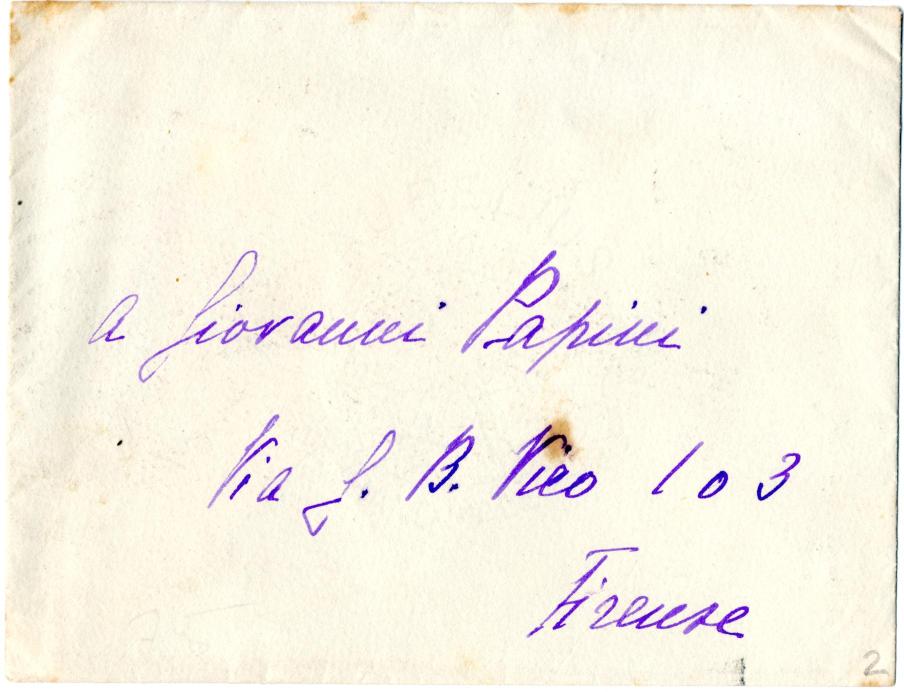 a Giovanni Papini
Via G. B. Vico 103
Firenze
2